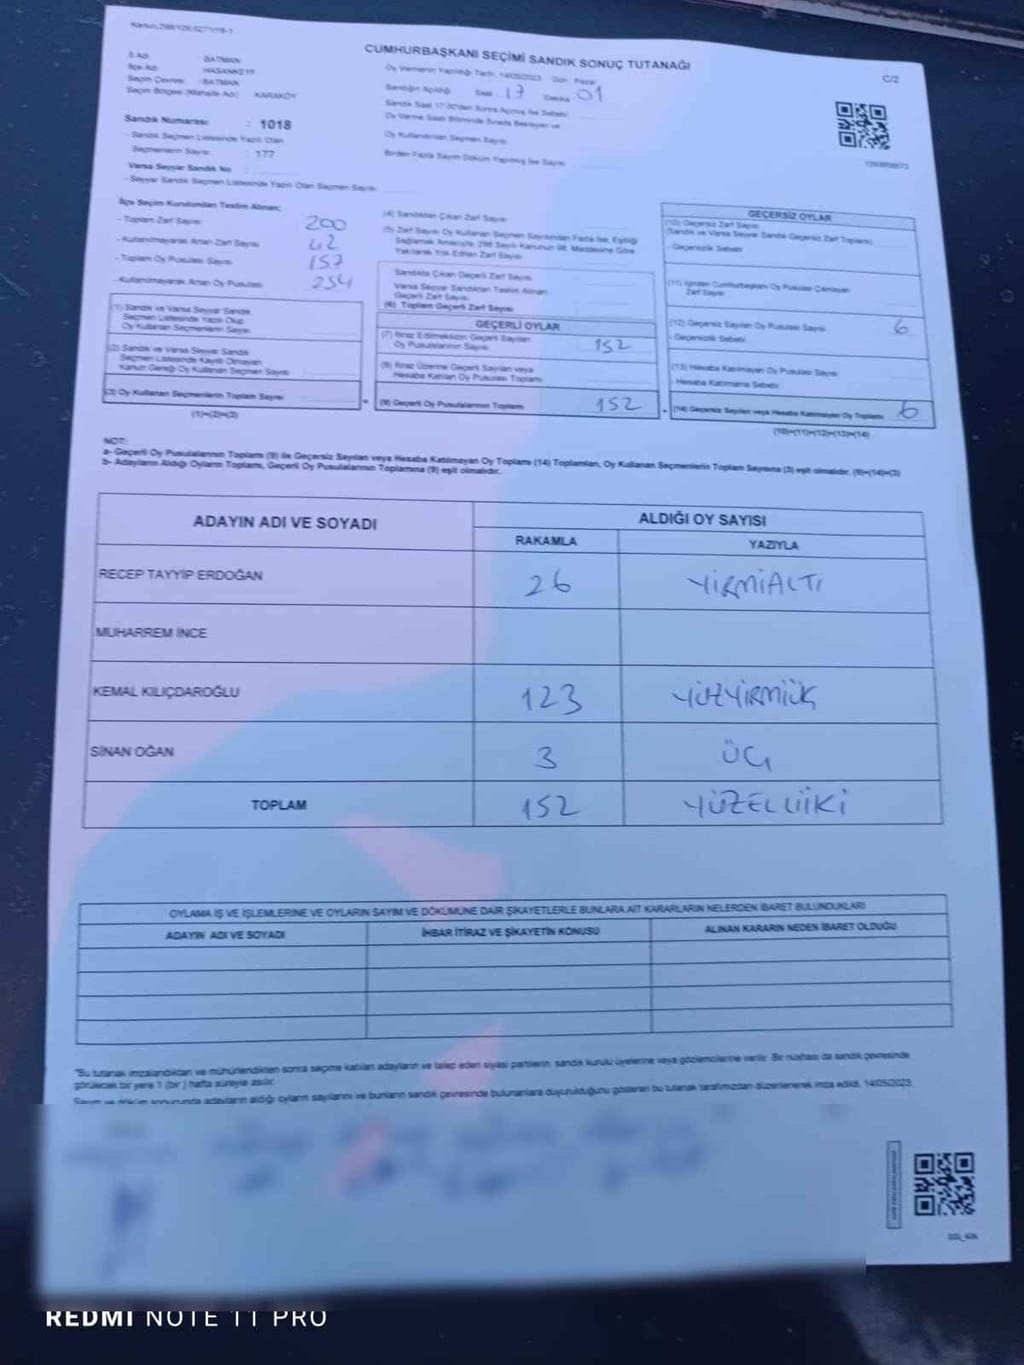 CUMHURBAŞKANI SEÇİMİ SANDIK SONUÇ TUTANAĞI
C/2
İl Adı : BATMAN
İlçe Adı : HASANKEYF
Seçim Çevresi : BATMAN
Seçim Bölgesi (Mahalle Adı) : KARAKÖY
Oy Vermenin Yapıldığı Tarih: 14/05/2023 Gün: Pazar
Sandığın Açıldığı Saat 17 Dakika 01
Sandık Saat 17.00'den Sonra Açılmış İse Sebebi:
Oy Verme Saat Bitiminde Sırada Bekleyen ve
Oy Kullandırılan Seçmen Sayısı:
Birden Fazla Sayım Döküm Yapılmış İse Sayısı:
Sandık Numarası : 1018
- Sandık Seçmen Listesinde Yazılı Olan
Seçmenlerin Sayısı : 177
Varsa Seyyar Sandık No
- Seyyar Sandık Seçmen Listesinde Yazılı Olan Seçmen Sayısı:
İlçe Seçim Kurulundan Teslim Alınan;
- Toplam Zarf Sayısı 200
- Kullanılmayarak Artan Zarf Sayısı 42
- Toplam Oy Pusulası Sayısı 157
- Kullanılmayarak Artan Oy Pusulası 254
(1) Sandık ve Varsa Seyyar Sandık
Seçmen Listesinde Yazılı Olup
Oy Kullanan Seçmenlerin Sayısı
(2) Sandık ve Varsa Seyyar Sandık
Seçmen Listesinde Kayıtlı Olmayan
Kanun Gereği Oy Kullanan Seçmen Sayısı
(3) Oy Kullanan Seçmenlerin Toplam Sayısı
(1)+(2)=(3)
(4) Sandıktan Çıkan Zarf Sayısı
(5) Zarf Sayısı Oy Kullanan Seçmen Sayısından Fazla İse, Eşitliği
Sağlamak Amacıyla, 298 Sayılı Kanunun 98. Maddesine Göre
Yakılarak Yok Edilen Zarf Sayısı
Sandıkta Çıkan Geçerli Zarf Sayısı
Varsa Seyyar Sandıktan Teslim Alınan
Geçerli Zarf Sayısı
(6) Toplam Geçerli Zarf Sayısı
GEÇERLİ OYLAR
(7) İtiraz Edilmeksizin Geçerli Sayılan
Oy Pusulalarının Sayısı 152
(8) İtiraz Üzerine Geçerli Sayılan veya
Hesaba Katılan Oy Pusulası Toplamı
(9) Geçerli Oy Pusulalarının Toplamı 152
GEÇERSİZ OYLAR
(10) Geçersiz Zarf Sayısı
(Sandık ve Varsa Seyyar Sandık Geçersiz Zarf Toplamı)
- Geçersizlik Sebebi:
(11) İçinden Cumhurbaşkanı Oy Pusulası Çıkmayan
Zarf Sayısı
(12) Geçersiz Sayılan Oy Pusulası Sayısı 6
- Geçersizlik Sebebi:
(13) Hesaba Katılmayan Oy Pusulası Sayısı
- Hesaba Katılmama Sebebi:
(14) Geçersiz Sayılan veya Hesaba Katılmayan Oy Toplamı 6
(10)+(11)+(12)+(13)=(14)
NOT:
a- Geçerli Oy Pusulasının Toplamı (9) ile Geçersiz Sayılan veya Hesaba Katılmayan Oy Toplamı (14) Toplamları, Oy Kullanan Seçmenlerin Toplam Sayısına (3) eşit olmalıdır. (9)+(14)=(3)
b- Adayların Aldığı Oyların Toplamı, Geçerli Oy Pusulalarının Toplamına (9) eşit olmalıdır.
ADAYIN ADI VE SOYADI ALDIĞI OY SAYISI
RAKAMLA YAZIYLA
RECEP TAYYİP ERDOĞAN 26 YİRMİALTI
MUHARREM İNCE
KEMAL KILIÇDAROĞLU 123 YÜZYİRMİÜÇ
SİNAN OĞAN 3 ÜÇ
TOPLAM 152 YÜZELLİİKİ
OYLAMA İŞ VE İŞLEMLERİNE VE OYLARIN SAYIM VE DÖKÜMÜNE DAİR ŞİKAYETLERLE BUNLARA AİT KARARLARIN NELERDEN İBARET BULUNDUKLARI
ADAYIN ADI VE SOYADI İHBAR İTİRAZ VE ŞİKAYETİN KONUSU ALINAN KARARIN NEDEN İBARET OLDUĞU
"Bu tutanak imzalandıktan ve mühürlendikten sonra seçime katılan adayların ve talep eden siyasi partilerin sandık kurulu üyelerine veya gözlemcilerine verilir. Bir nüshası da sandık çevresinde
görülecek bir yere 1 (bir) hafta süreyle asılır.
Sayım ve döküm sonucunda adayların aldığı oyların sayılarını ve bunların sandık çevresinde bulunanlara duyurulduğunu gösteren bu tutanak tarafımızdan düzenlenerek imza edildi. 14/05/2023
REDMI NOTE 11 PRO